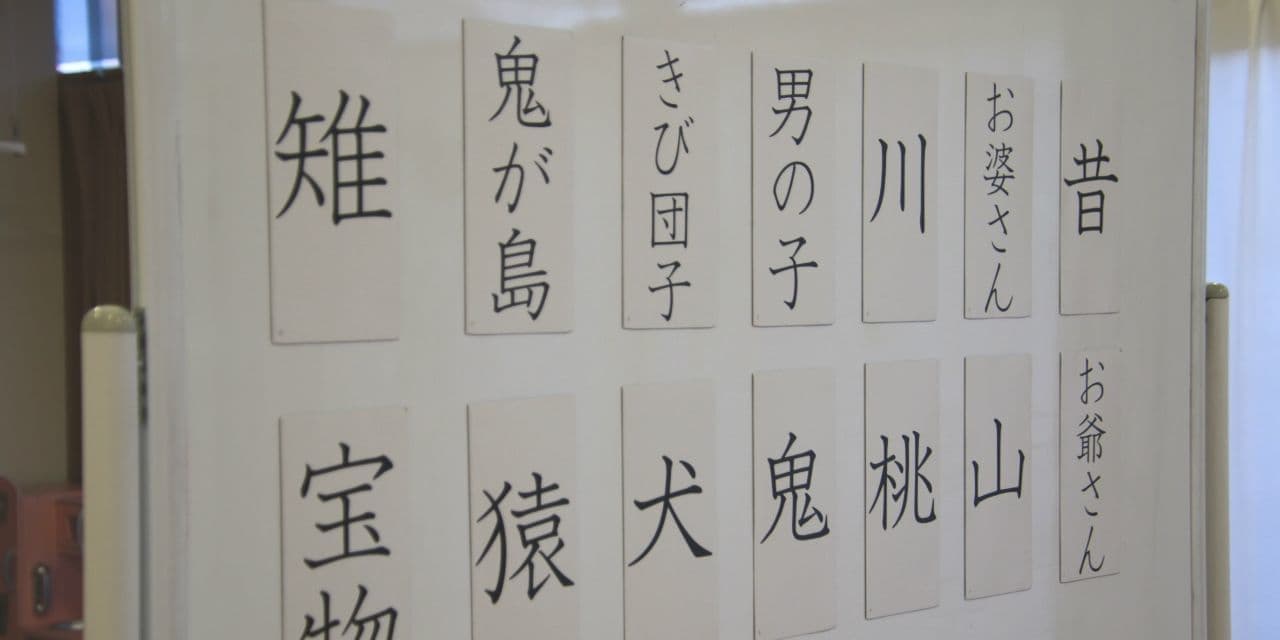 昔
お爺さん
お婆さん
山
川
桃
男の子
鬼
きび団子
犬
鬼が島
猿
雉
宝物